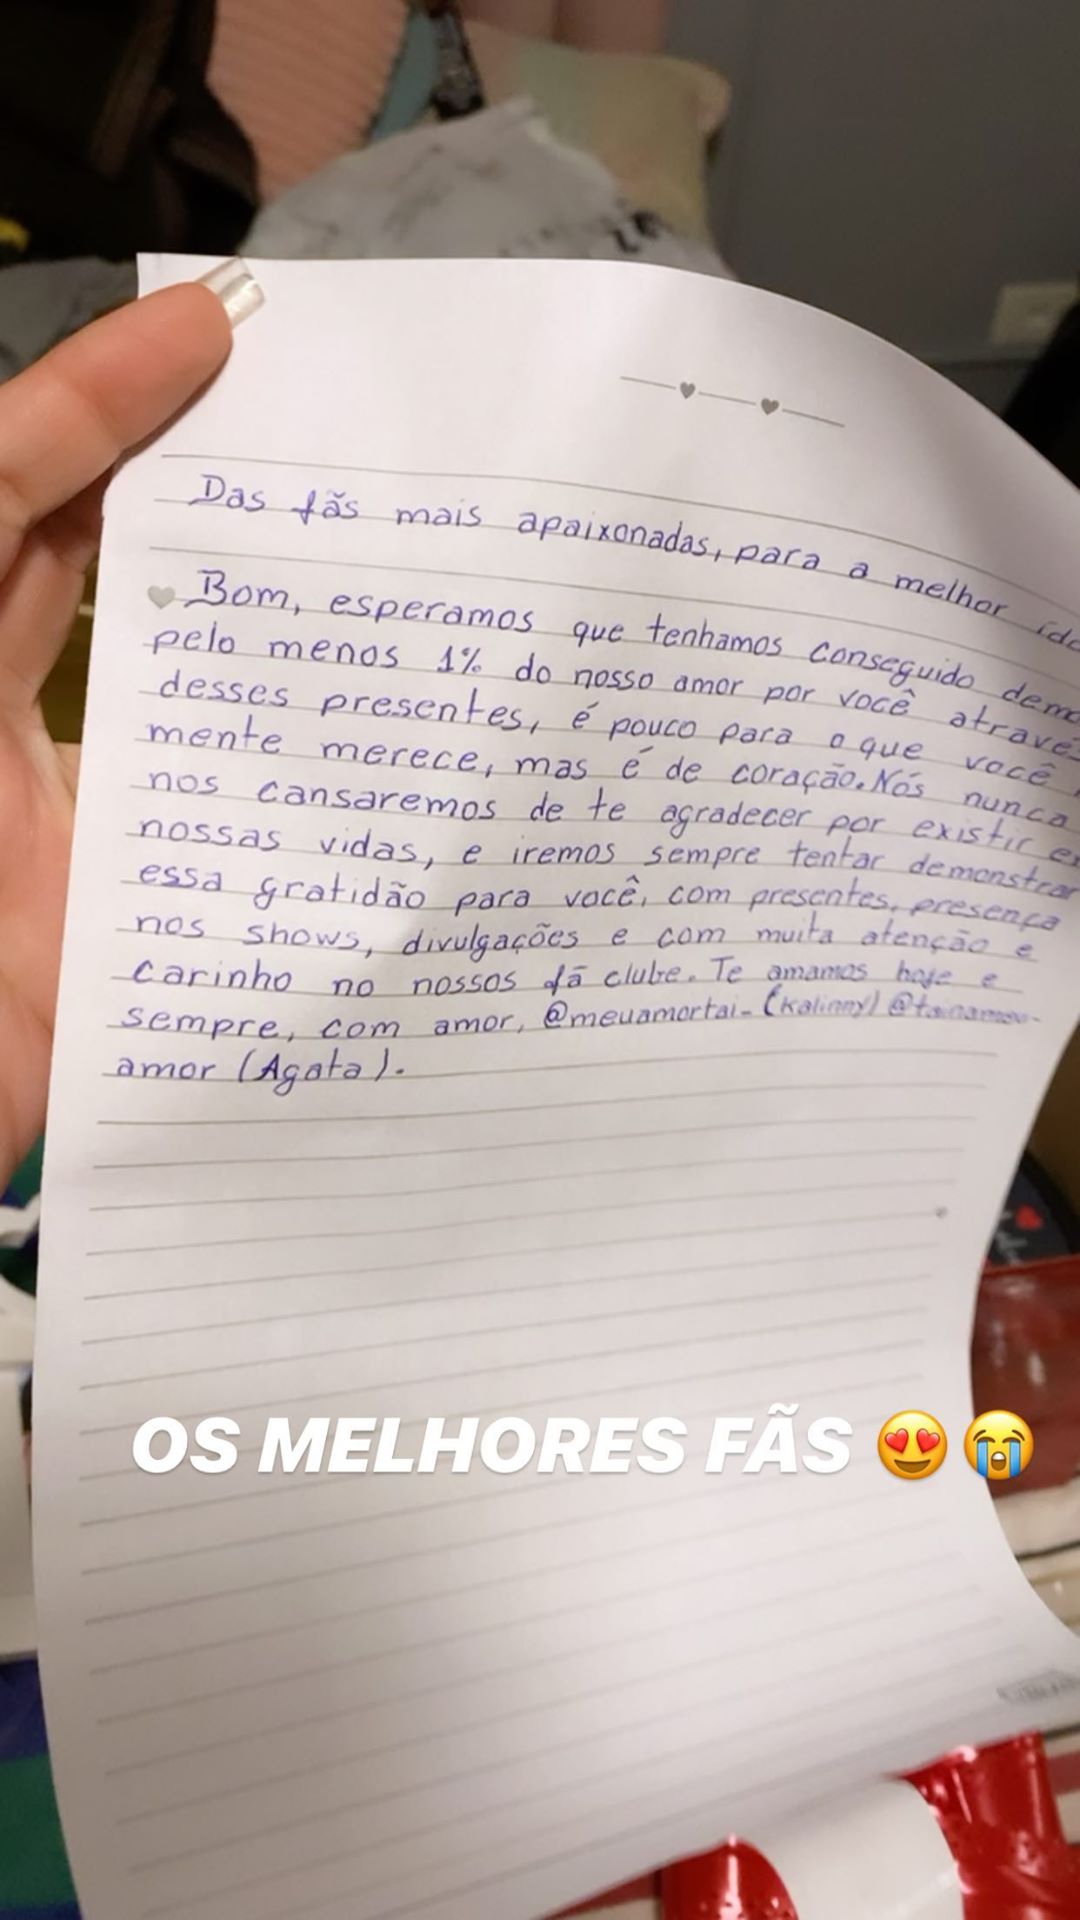 Das fãs mais apaixonadas, para a melhor
Bom, esperamos que tenhamos conseguido
pelo menos 1% do nosso amor por você
desses presentes, é pouco para o que você
mente merece, mas é de coração. Nós nunca
nos cansaremos de te agradecer por existir
nossas vidas, e iremos sempre tentar demonstrar
essa gratidão para você, com presentes, presença
nos shows, divulgações e com muita atenção e
carinho no nossos fã clube. Te amamos hoje e
sempre, com amor, @meuamortai_ (Kalinny) @tainameu-
amor (Agata).
OS MELHORES FÃS 😍😭